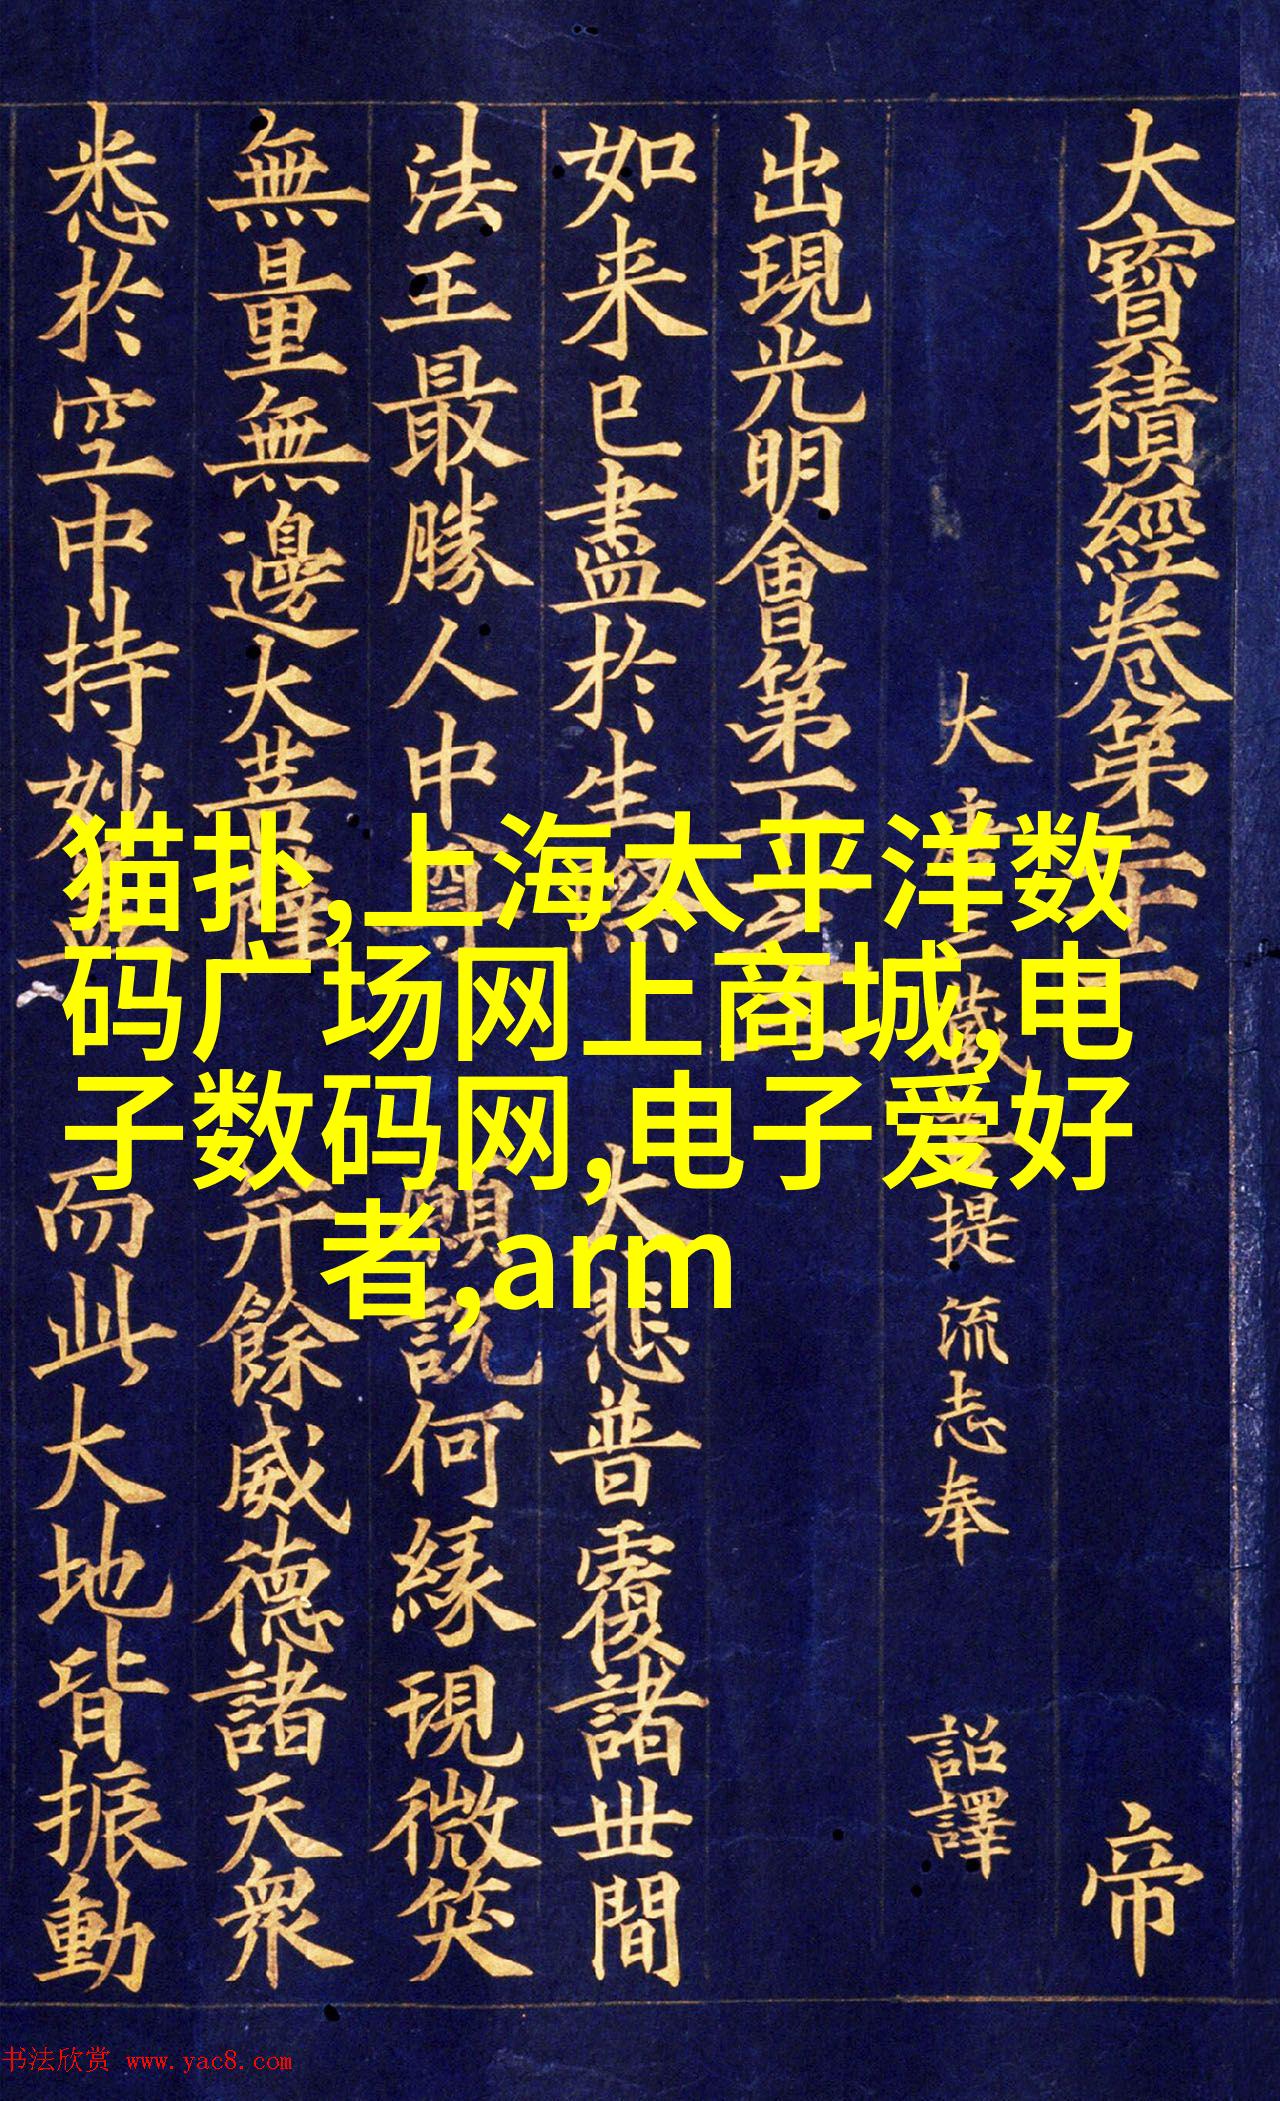 大寶積經卷第三十二 帝
大唐三藏菩提流志奉 詔譯
出現光明會第十一之三
如来已盡於生 大悲普覆諸世間
法王最勝人中尊 願說何縁現微笑
無量無邊大菩薩 并餘威德諸天衆
悉於空中持妙 而此大地皆振動
猫扑,上海太平洋数
码广场网上商城,电
子数码网,电子爱好
者,arm
书法欣赏 www.yac8.com